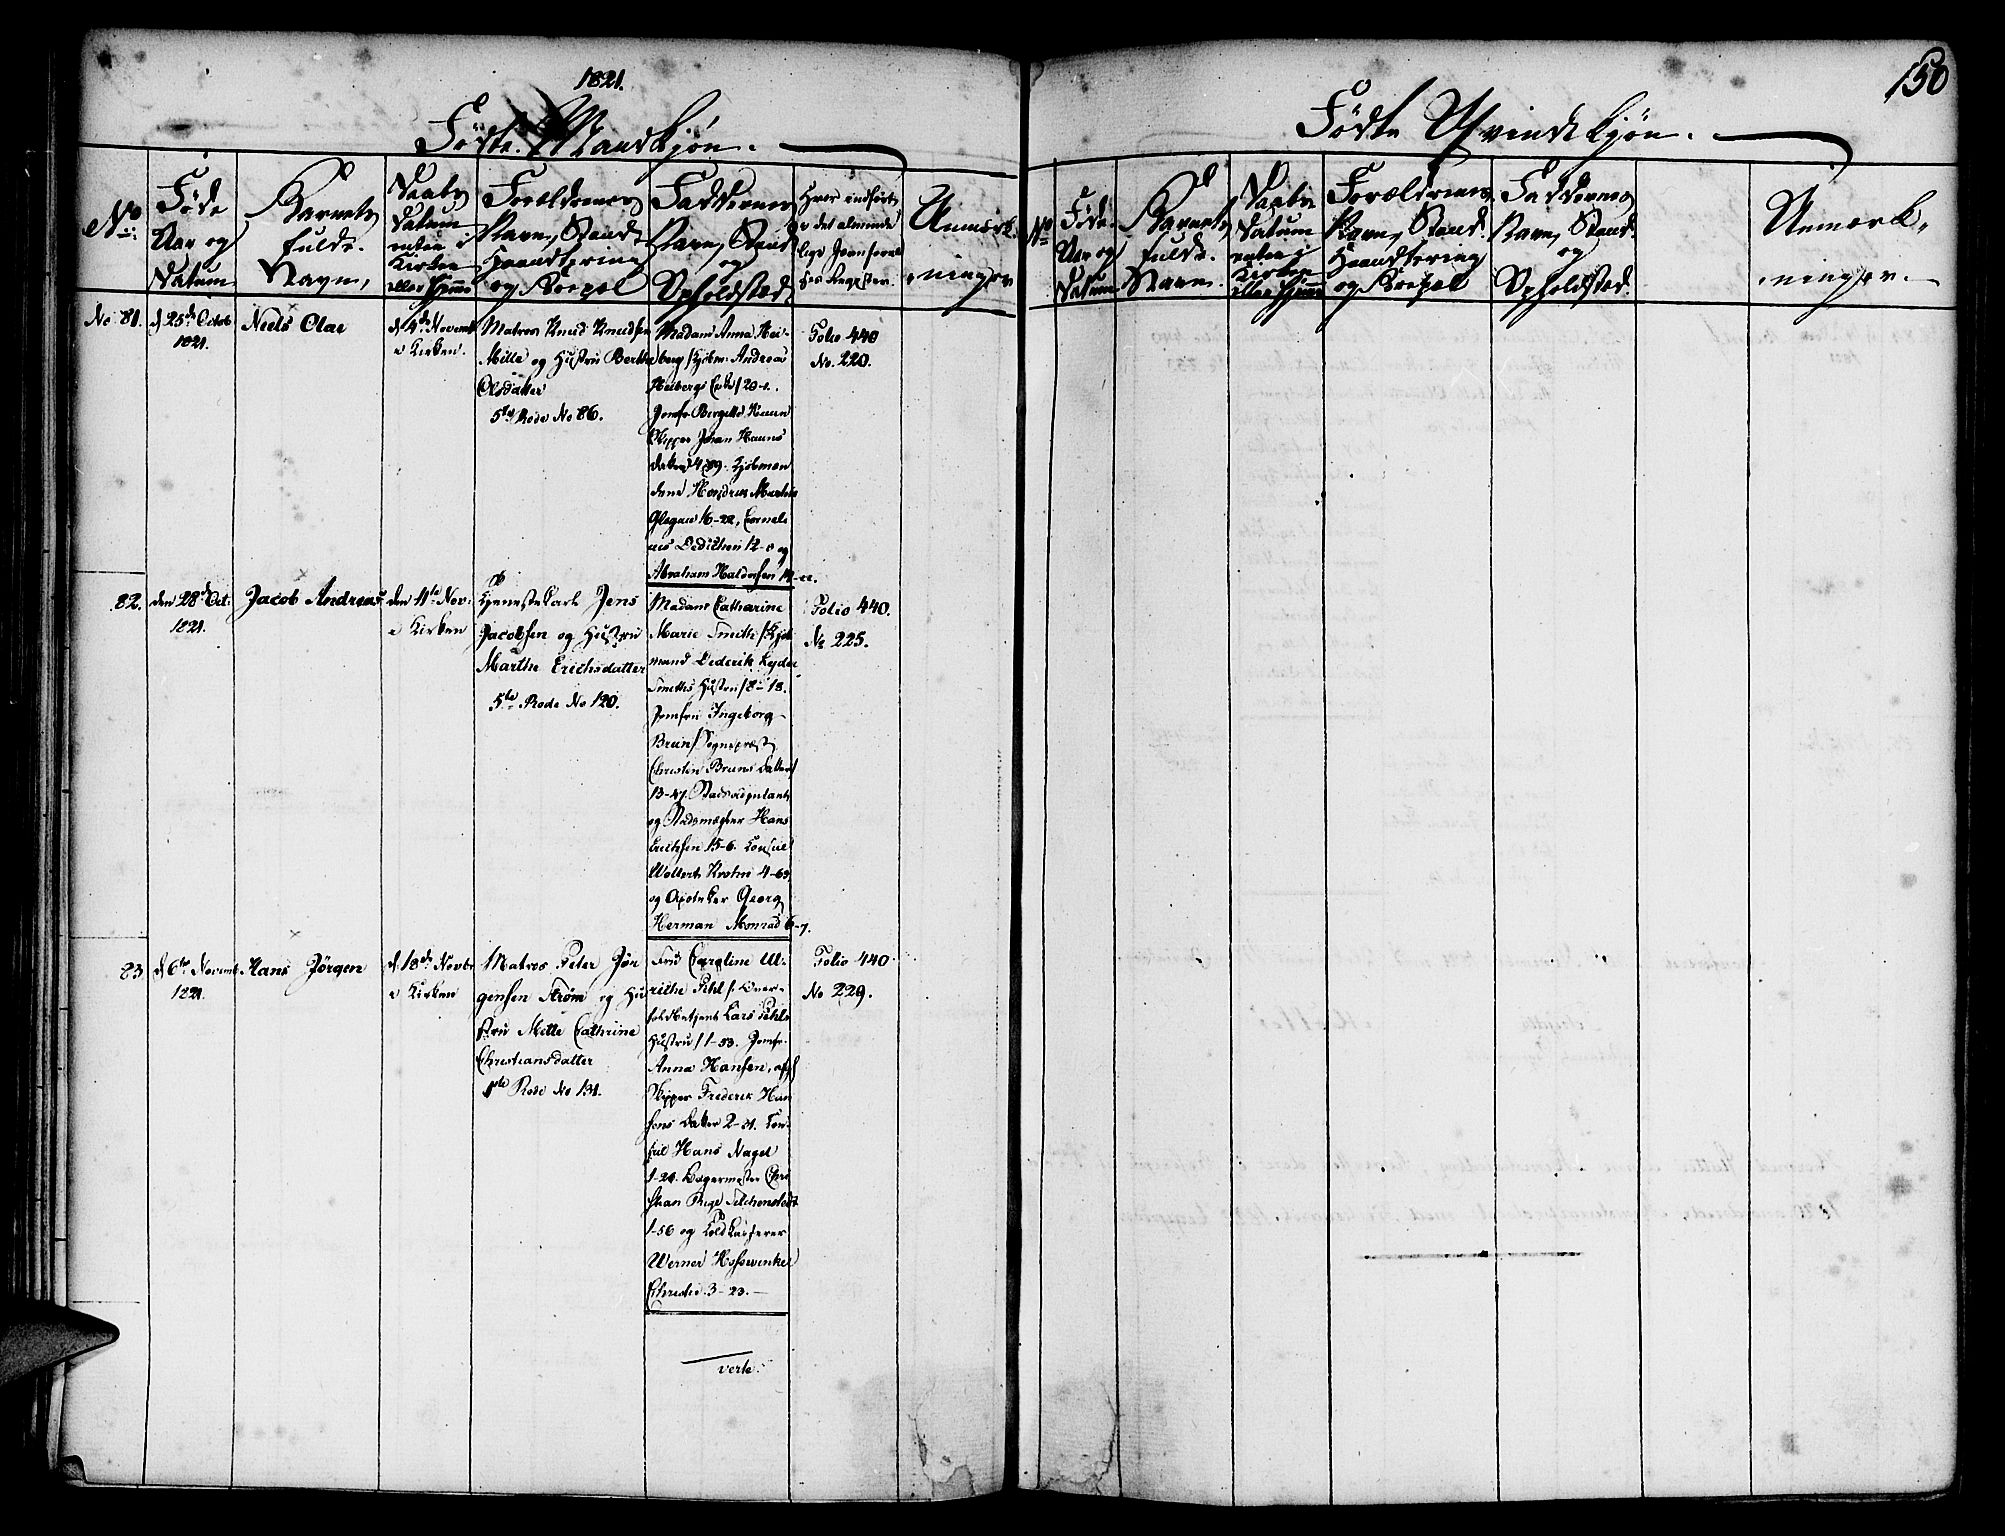 1821.
Fødte Mandkjøn.
No
Føde Aar og Datum
Barnets fulde Navn,
Daabs Datum enten i Kirken eller Hjemme
Forældrenes Navn, Stand Haandtering og Boepæl
Faddernes Navn, Stand og Opholdsted.
Hvor indført i det almindelige Jevnførelses Register.
Anmærkninger
No 81.
d 25de Octob
1821.
Niels Olai
d 4de Novemb
i Kirken.
Matros Knud Knudsen
Mille og Hustru Berthe
Olsdatter
5te Rode No 86.
Madam Anna Hei-
berg /Kjøbm: Andreas
Heibergs Enke/ 20-1.
Jomfr Bergitte Haun
Skipper Johan Hauns
datter/ 4-89. Kjøbmæn
dene Hendrich Martin
Glogau 16-22, Corneli
us Dedichen 12-8 og
Abraham Haldorsen 14-22.
Folio 440
No. 220.
82.
den 28de Oct:
1821.
Jacob Andreas
den 11te Nov.
i Kirken
Tjenestekarl Jens
Jacobsen og Hustru
Marthe Erichsdatter
5te Rode No 120.
Madam Catharine
Marie Smith /Kjøb
mand Dederik Lyder
Smiths Hustru/ 8-18.
Jomfru Ingeborg
Brun/ Sognepræst
Christen Bruns datter/
13-47.
og Stadsmægler Hans
Erichsen 15-6. Consul
Wollert Krohn 4-63
og Apoteker Georg
Herman Monrad 6-7.
Folio 440.
No 225.
83
d 6te Novemb
1821.
Hans Jörgen
d. 18de Novbr
i Kirken
Matros Peter Jør
gensen Strøm og Hu
stru Mette Cathrine
Christiansdatter
1ste Rode No 131.
Fru Caroline Ul-
rikke Pihl /: Over-
toldbetjent Lars Pihls
Hustru/ 1-53. Jomfr
Anna Hansen, afg
Skipper Frederik Han
sens datter 2-21. Con-
sul Hans Nagel
1-24. Lagermester Chri
stian Teichenstedt
1-56 og Toldkasserer
Werner Hosewinkel
Christie. 3-23.
Folio 440.
No 229.
verte.
150
Fødte Qvindekjøn.
No
Føde Aar og Datum
Barnets fulde Navn.
Daabs Datum enten i Kirken eller Hjemme
Forældrenes Navn, Stand. Haandtering og Boepæl
Faddernes Navn, Stand. og Opholdsted.
Anmærkninger.